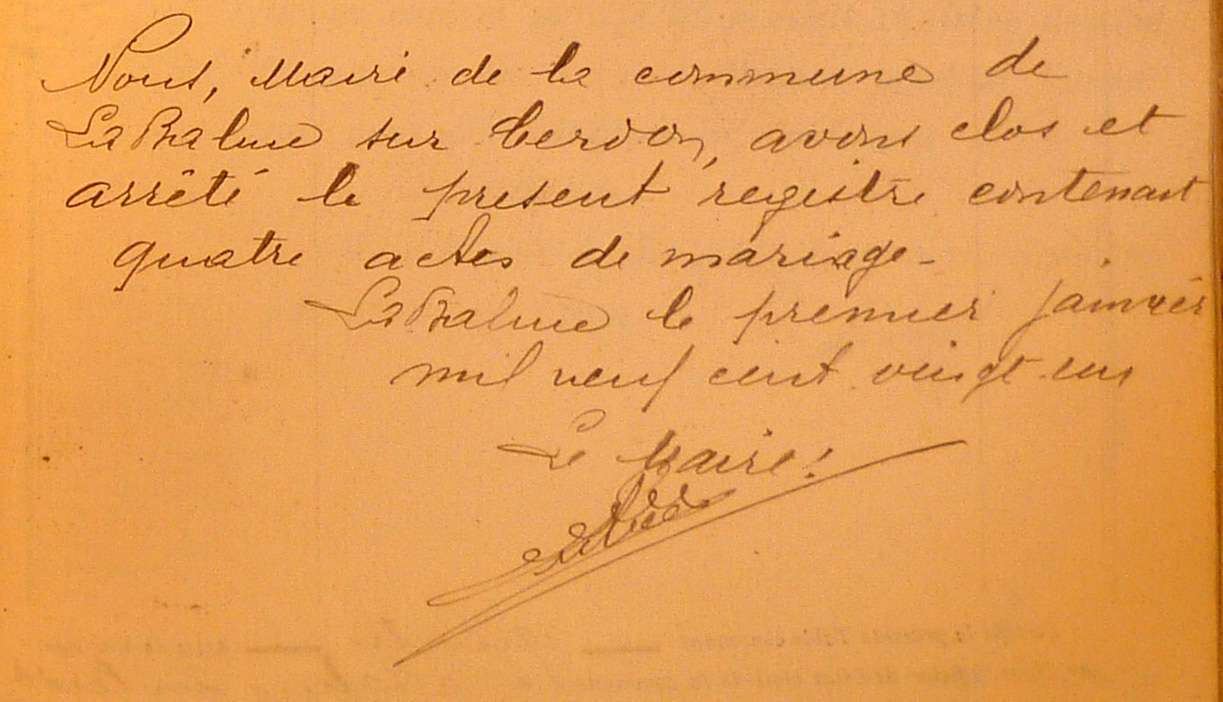 Nous, Maire de la commune de
La Balme sur Cerdon, avons clos et
arrêté le present registre contenant
quatre actes de mariage -
La Balme le premier janvier
mil neuf cent vingt un
Le Maire :